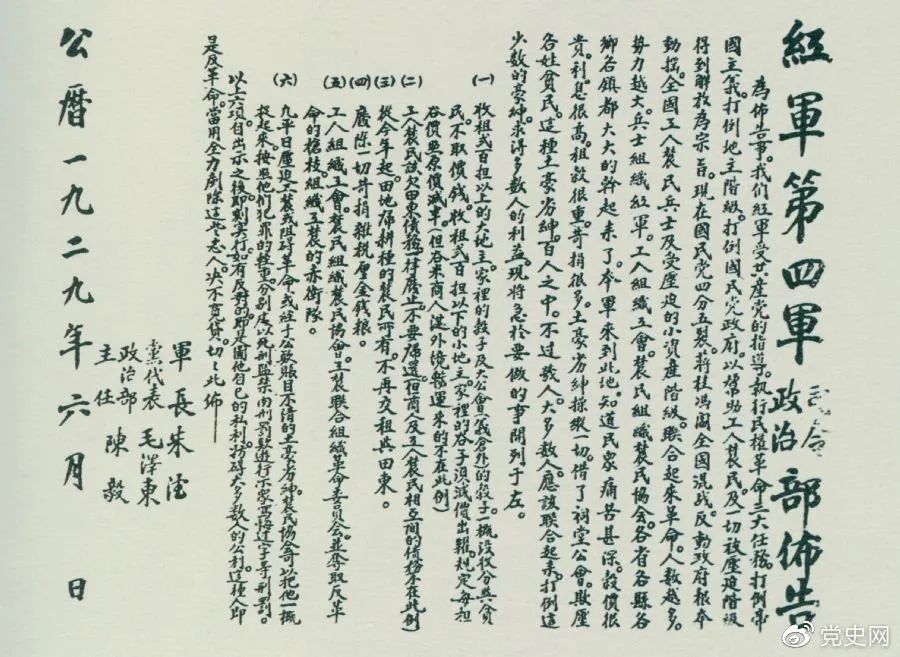 紅軍第四軍司令政治部佈告
為佈告事。我們紅軍受共產黨的指導。執行民權革命三大任務。打倒帝
國主義。打倒地主階級。打倒國民党政府。以幫助工人農民。及一切被壓迫階級
得到解放為宗旨。現在國民黨四分五裂。蔣桂馮閻全國混战。反動政府根本
動搖。全國工人農民兵士及受壓迫的小資產階級。聯合起來革命。人數越多。
勢力越大。兵士組織紅軍。工人組織工會。農民組織農民協会。各省各縣各
鄉各鎮都大大的幹起來了。本軍來到此地。知道民衆痛苦甚深。穀價很
貴。利息很高。租穀很重。苛捐很多。土豪劣紳操縱一切。借了祠堂公會。欺壓
各姓貧民。這種土豪劣紳。百人之中。不过数人。大多数人。應該联合起来。打倒這
少数的豪紳。求得多数人的利益。現將急於要做的事開列于左。
(一) 收租弍百担以上的大地主。家裡的穀子及大公會(義倉外)的穀子。一概沒收分與貧
民。不取價錢。收租弍百担以下的小地主。家裡的谷子須減價出糶。規定每担
谷價照原價減半。(但谷米商人從外境辦運来的不在此例)
(二) 工人農民該欠田東債務。一律廢止。不要歸還。(但商人及工人農民相互間的債務不在此例)
(三) 從今年起。田地歸耕種的農民所有。不再交租與田東。
(四) 廢除一切苛捐雜税厘金錢粮。
(五) 工人組織工會。農民組織農民協會。工農联合組織革命委員会。並奪取反革
命的槍枝。組織工農的赤衛隊。
(六) 凡平日壓迫工農或阻碍革命。或経手公款賬目不清的土豪劣紳。農民協會可以把他一概
捉起来。按照他们犯罪的輕重。分别處以死刑監禁肉刑罰款遊行示衆写悔过字等刑罰。
以上六項。自出示之後。即刻实行。如有反對的。即是圖他自己的私利。妨碍大多数人的公利。這種人即
是反革命。當用全力剷除這些悪人。决不寬貸。切切此佈
軍長朱德
黨代表毛澤東
政治部主任陳毅
公曆一九二九年六月 日
党史网